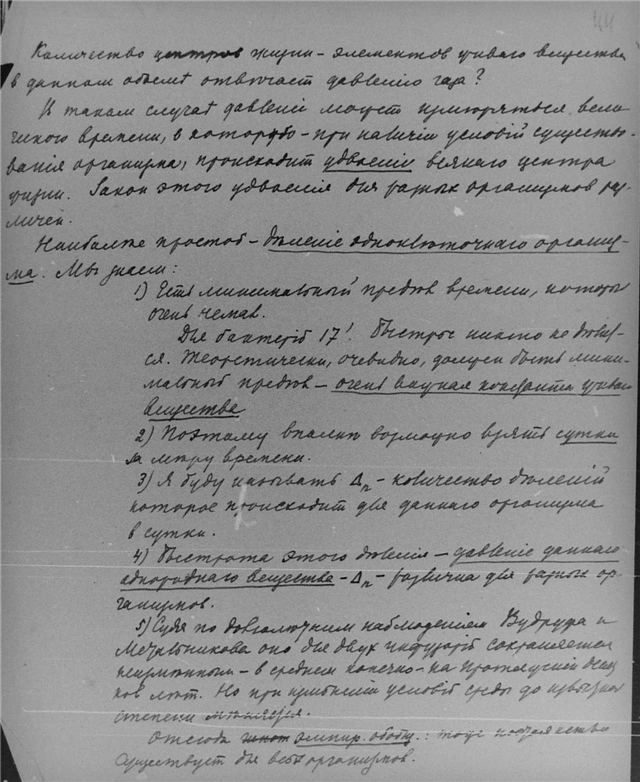 44
Количество центров жизни – элементов живаго вещества
в данном объемѣ отвѣчает давленію газа?
В таком случаѣ давленіе может измѣряться вели-
времени, в – при наличіи условій существо-
ванія организма, происходит удвоеніе всякаго центра
жизни. Закон этого удвоенія для разных организмов раз-
личен.
Наиболѣе простой – дѣленіе одноклѣточнаго организ-
ма. Мы знаем:
1) Есть минимальный предѣл времени, который
очень
Для бактерій 17'. Быстрѣе никто не дѣлит-
ся. Теоретически, очевидно, должен быть мини-
мальный предѣл – очень важная константа живого
вещества
2) Поэтому вполнѣ возможно взять сутки
за мѣру времени.
3) Я буду называть Δn – количество дѣленій
которое происходит для даннаго организма
в сутки.
4) Быстрота этого дѣленія – давленіе даннаго
однороднаго вещества – Δn – различна для разных ор-
ганизмов.
5) Судя по долголѣтним наблюденіям Вудруфа и
Метальникова оно для двух инфузорій сохраняется
неизмѣнным – в среднем конечно – на протяженіи десят-
ков лѣт. Но при условій среды до извѣстной
степени мѣняется.
Отсюда эмпир. обобщ.: тоже
существует для всѣх организмов.